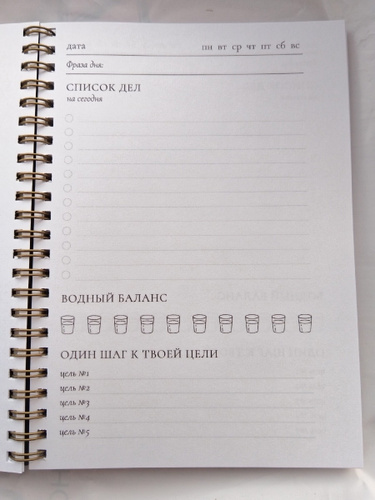 дата пн вт ср чт пт сб вс
Фраза дня:
СПИСОК ДЕЛ
на сегодня
ВОДНЫЙ БАЛАНС
ОДИН ШАГ К ТВОЕЙ ЦЕЛИ
цель №1
цель №2
цель №3
цель №4
цель №5